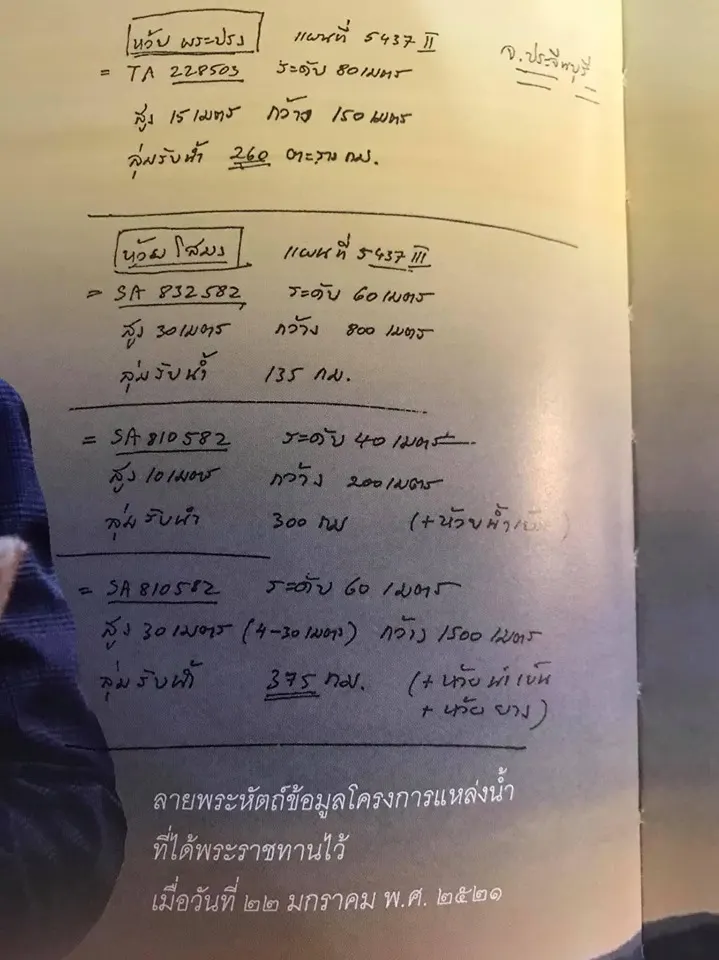 ห้วย พระปรง แผนที่ 5437 II จ.ปราจีนบุรี
= TA 228503 ระดับ 80 เมตร
สูง 15 เมตร กว้าง 150 เมตร
ลุ่มรับน้ำ 260 ตะราง กม.
ห้วย โสมง แผนที่ 5437 III
= SA 832582 ระดับ 60 เมตร
สูง 30 เมตร กว้าง 800 เมตร
ลุ่มรับน้ำ 135 กม.
= SA 810582 ระดับ 40 เมตร
สูง 10 เมตร กว้าง 200 เมตร
ลุ่มรับน้ำ 300 กม (+ ห้วยน้ำเย็น)
= SA 810582 ระดับ 60 เมตร
สูง 30 เมตร (4-30 เมตร) กว้าง 1500 เมตร
ลุ่มรับน้ำ 375 กม. (+ ห้วย น้ำเย็น
+ ห้วย ยาง)
ลายพระหัตถ์ข้อมูลโครงการแหล่งน้ำ
ที่ได้พระราชทานไว้
เมื่อวันที่ ๒๒ มกราคม พ.ศ. ๒๕๒๑